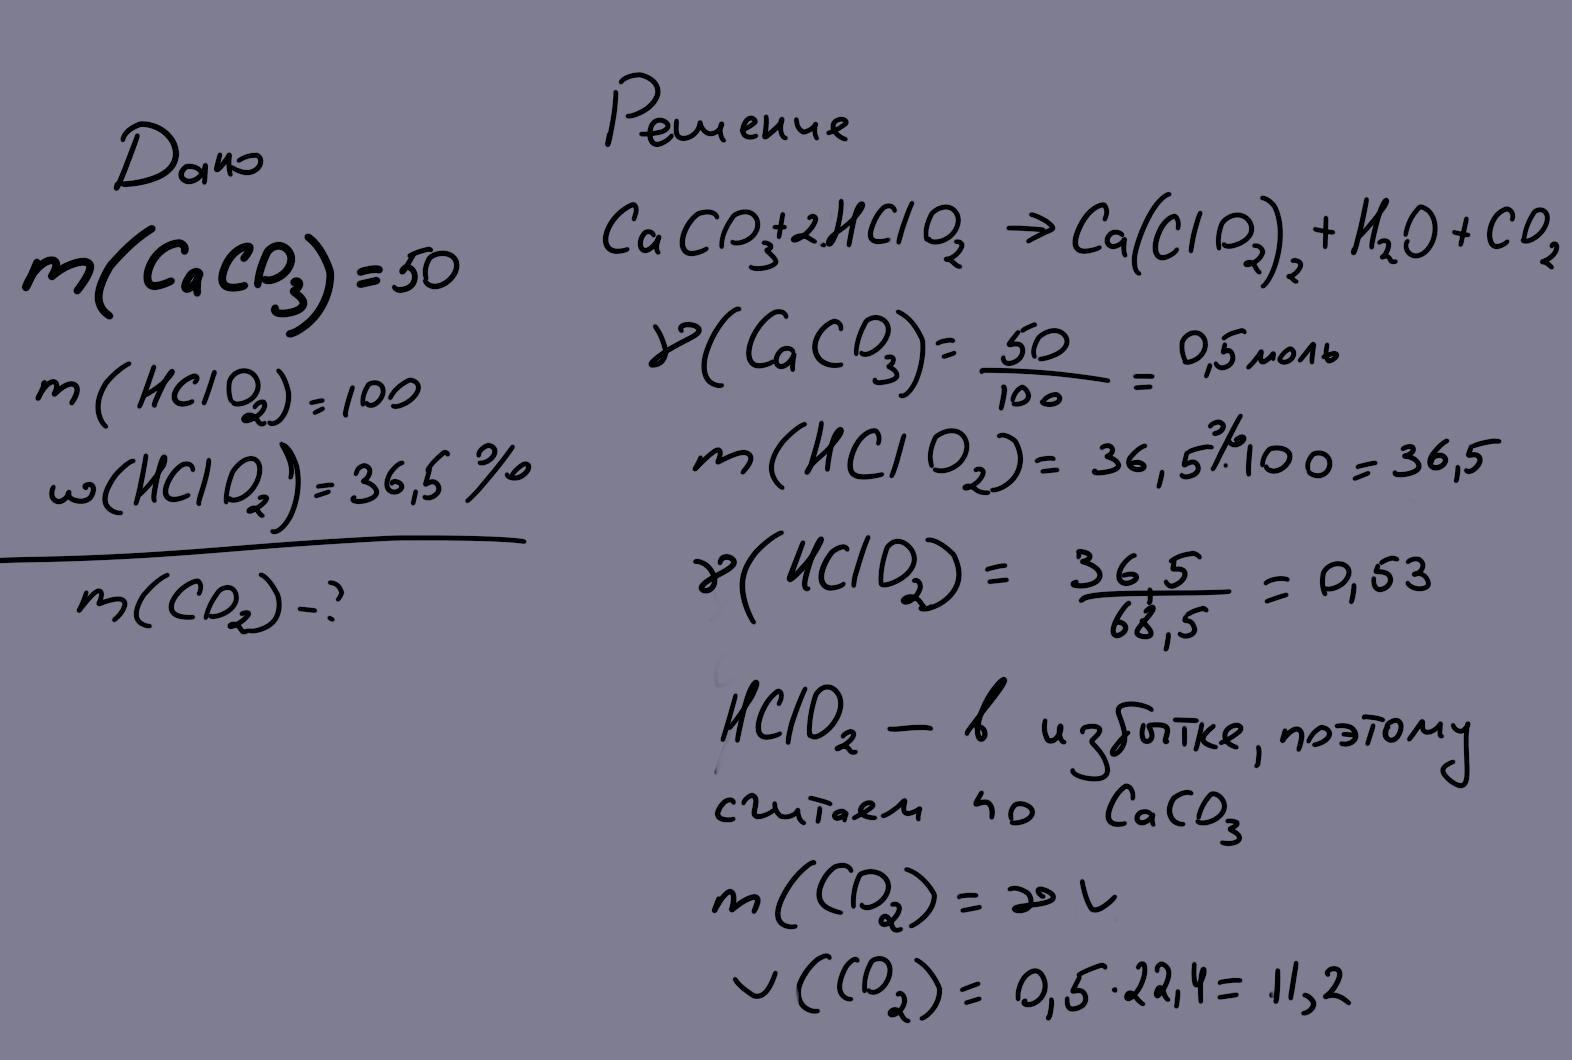 Дано
m(CaCO₃) = 50
m(HClO₂) = 100
ω(HClO₂) = 36,5 %
m(CO₂) - ?
Решение
CaCO₃ + 2HClO₂ → Ca(ClO₂)₂ + H₂O + CO₂
γ(CaCO₃) = 50/100 = 0,5 моль
m(HClO₂) = 36,5% · 100 = 36,5
γ(HClO₂) = 36,5/68,5 = 0,53
HClO₂ — в избытке, поэтому
считаем по CaCO₃
m(CO₂) = γ V
V(CO₂) = 0,5 · 22,4 = 11,2